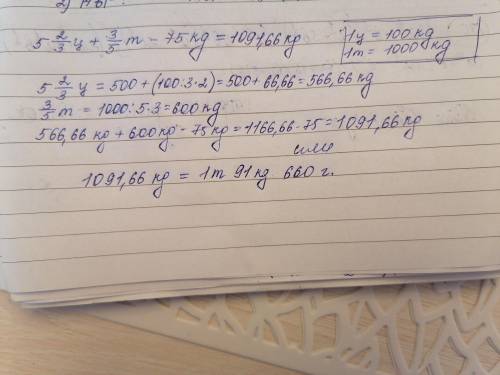 5 2/3 ц + 3/5 т - 75 кг = 1091,66 кг
1ц = 100 кг
1т = 1000 кг
5 2/3 ц = 500 + (100:3·2) = 500 + 66,66 = 566,66 кг
3/5 т = 1000:5·3 = 600 кг
566,66 кг + 600 кг - 75 кг = 1166,66 - 75 = 1091,66 кг
или
1091,66 кг = 1т 91 кг 660 г.